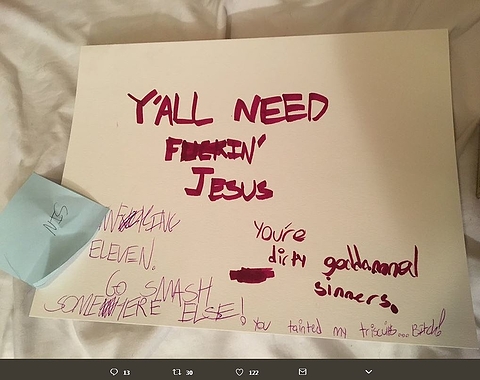 Y'ALL NEED
FUCKIN'
JESUS
SIN
ELEVEN!
GO SMASH
SOMEWHERE ELSE!
You're
dirty goddamned
sinners.
You tainted my triscuits... Bitch!
13 30 122